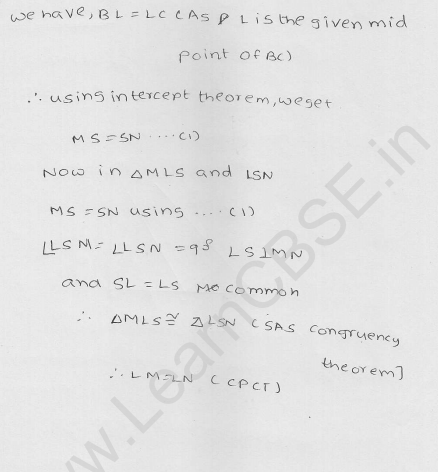 we have, BL = LC (As P L is the given mid
point of BC)
∴ using intercept theorem, we get
MS = SN ....(1)
Now in △MLS and LSN
MS = SN using ....(1)
∠LSM = ∠LSN = 90° LS⊥MN
and SL = LS common
∴ △MLS ≅ △LSN (SAS congruency
theorem]
∴ LM = LN (CPCT)
www.LearnCBSE.in